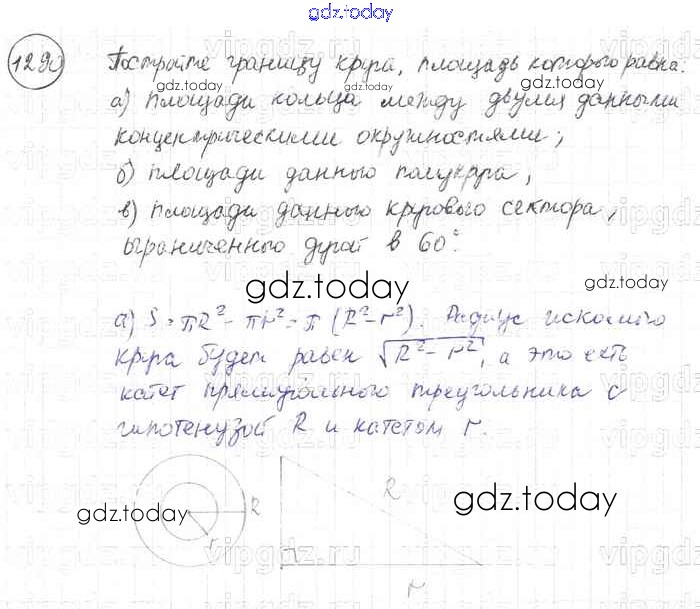 gdz.today
1290 Постройте границу круга, площадь которого равна:
gdz.today gdz.today
а) площади кольца между двумя данными
концентрическими окружностями;
б) площади данного полукруга;
в) площади данного кругового сектора,
ограниченного дугой в 60°.
gdz.today gdz.today
а) S = πR² - πr² = π (R² - r²). Радиус искомого
круга будет равен √R² - r², а это есть
катет прямоугольного треугольника с
гипотенузой R и катетом r.
R R
gdz.today gdz.today
r
r